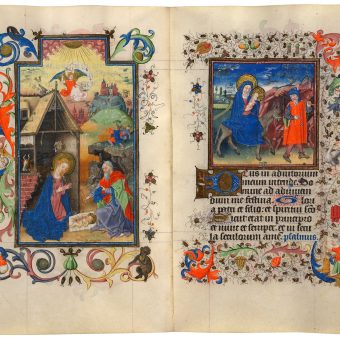 Deus in adiutorium
meum intende. Do
mine ad adiuvan
dum me festina. Glori
a patri et filio. et spiritui
sicut erat in principio
et nunc et semper. et in secu
la seculorum amen. psalmus.